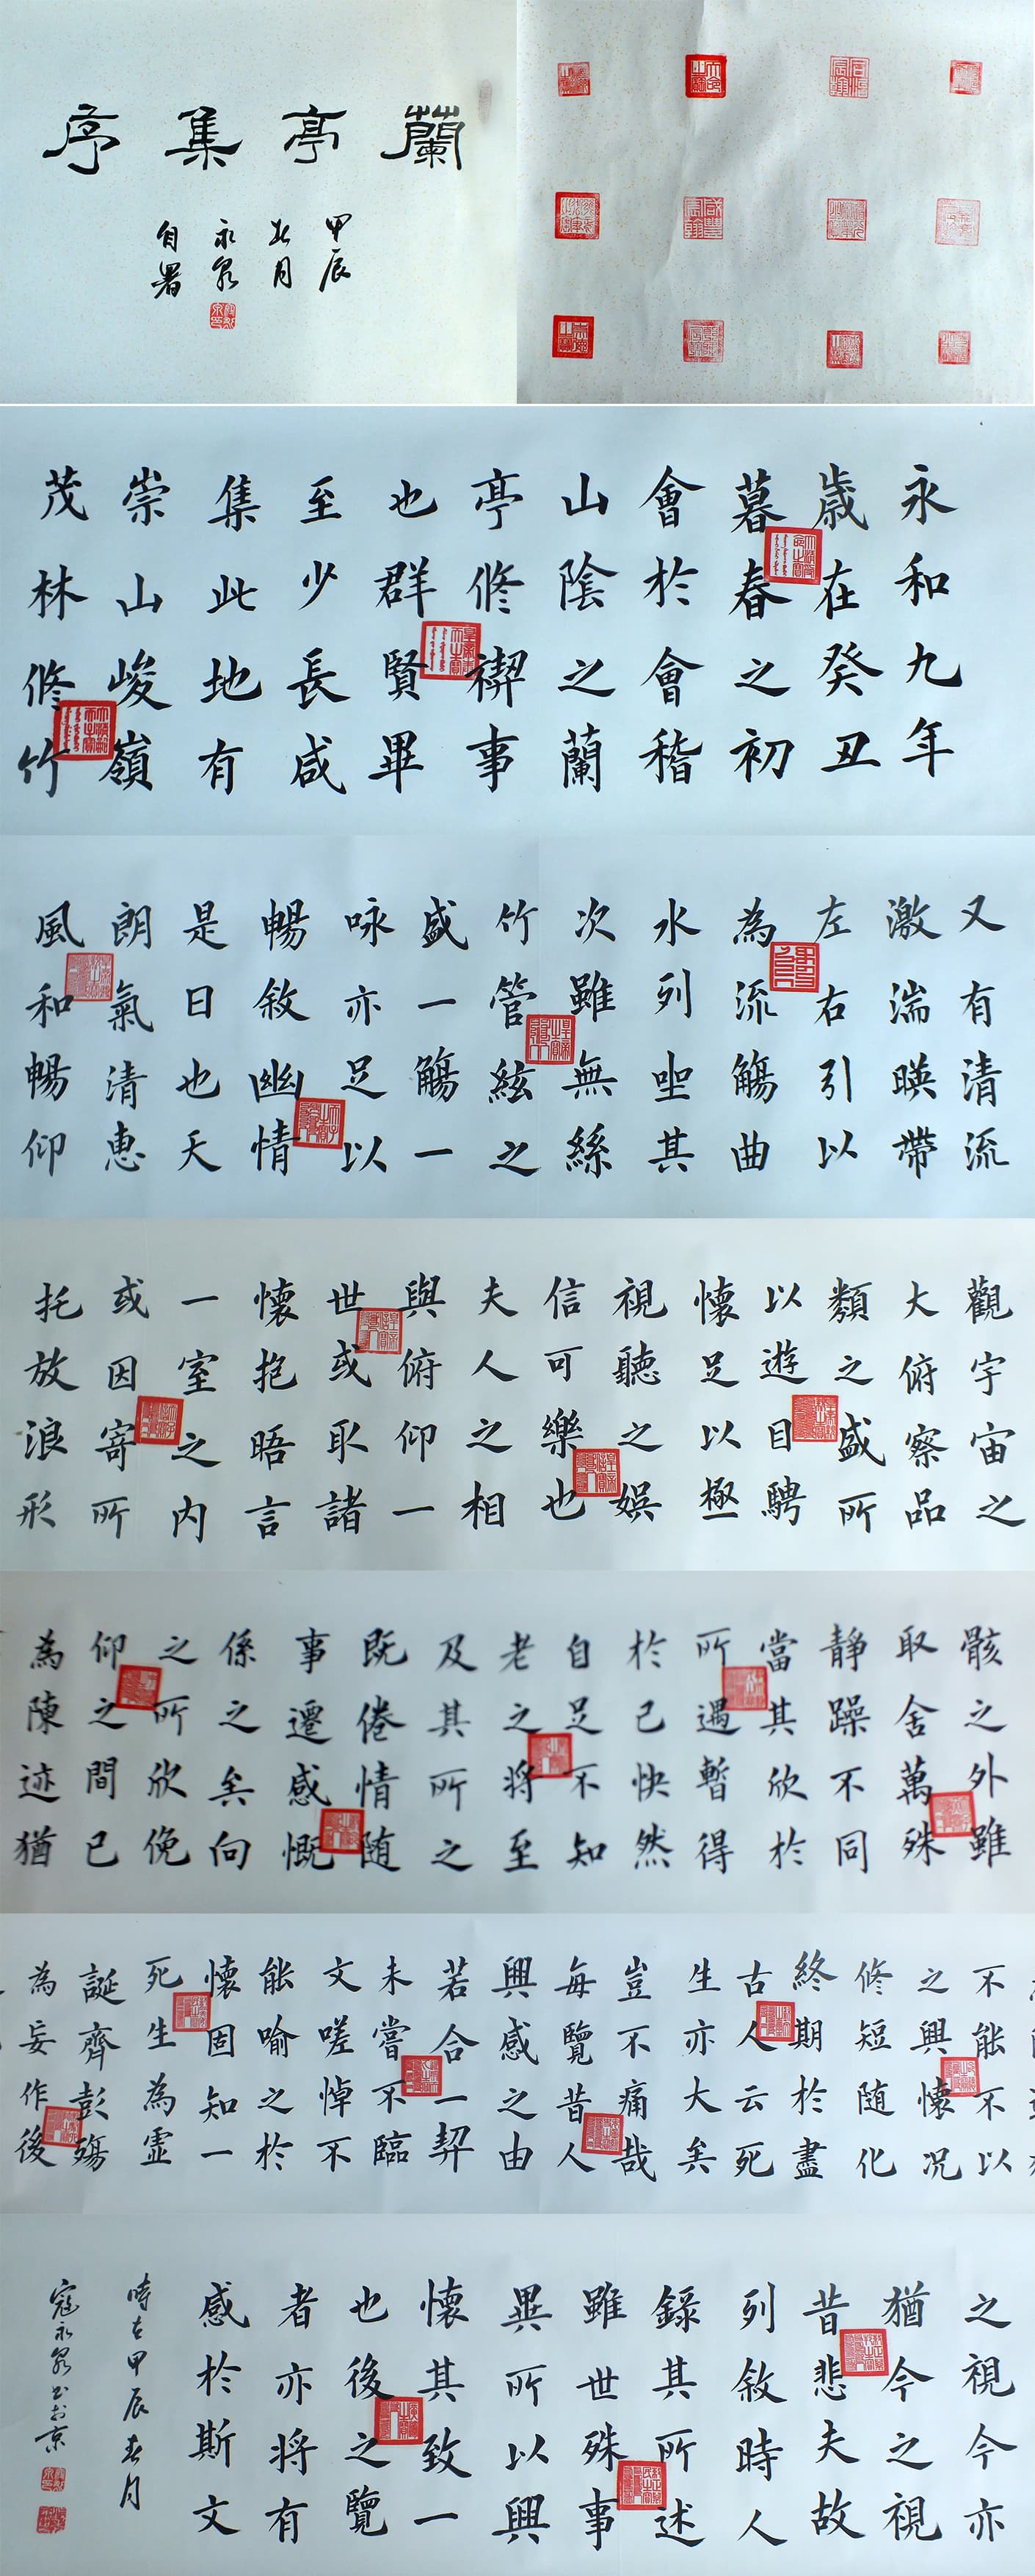 蘭亭集序
甲辰
春月
永泉
自署
永和九年
歲在癸丑
暮春之初
會於會稽
山陰之蘭
亭修禊事
也群賢畢
至少長咸
集此地有
崇山峻嶺
茂林修竹
又有清流
激湍暎帶
左右引以
為流觴曲
水列坐其
次雖無絲
竹管絃之
盛一觴一
咏亦足以
暢敘幽情
是日也天
朗氣清惠
風和暢仰
觀宇宙之
大俯察品
類之盛所
以遊目騁
懷足以極
視聽之娛
信可樂也
夫人之相
與俯仰一
世或取諸
懷抱晤言
一室之內
或因寄所
托放浪形
骸之外雖
取舍萬殊
靜躁不同
當其欣於
所遇暫得
於己快然
自足不知
老之將至
及其所之
既倦情随
事遷感慨
係之矣向
之所欣俛
仰之間已
為陳迹猶
不能不以
之興懷况
修短随化
終期於盡
古人云死
生亦大矣
豈不痛哉
每覽昔人
興感之由
若合一契
未嘗不臨
文嗟悼不
能喻之於
懷固知一
死生為虛
誕齊彭殤
為妄作後
之視今亦
猶今之視
昔悲夫故
列敘時人
錄其所述
雖世殊事
異所以興
懷其致一
也後之覽
者亦將有
感於斯文
時在甲辰春月
寇永泉書於京